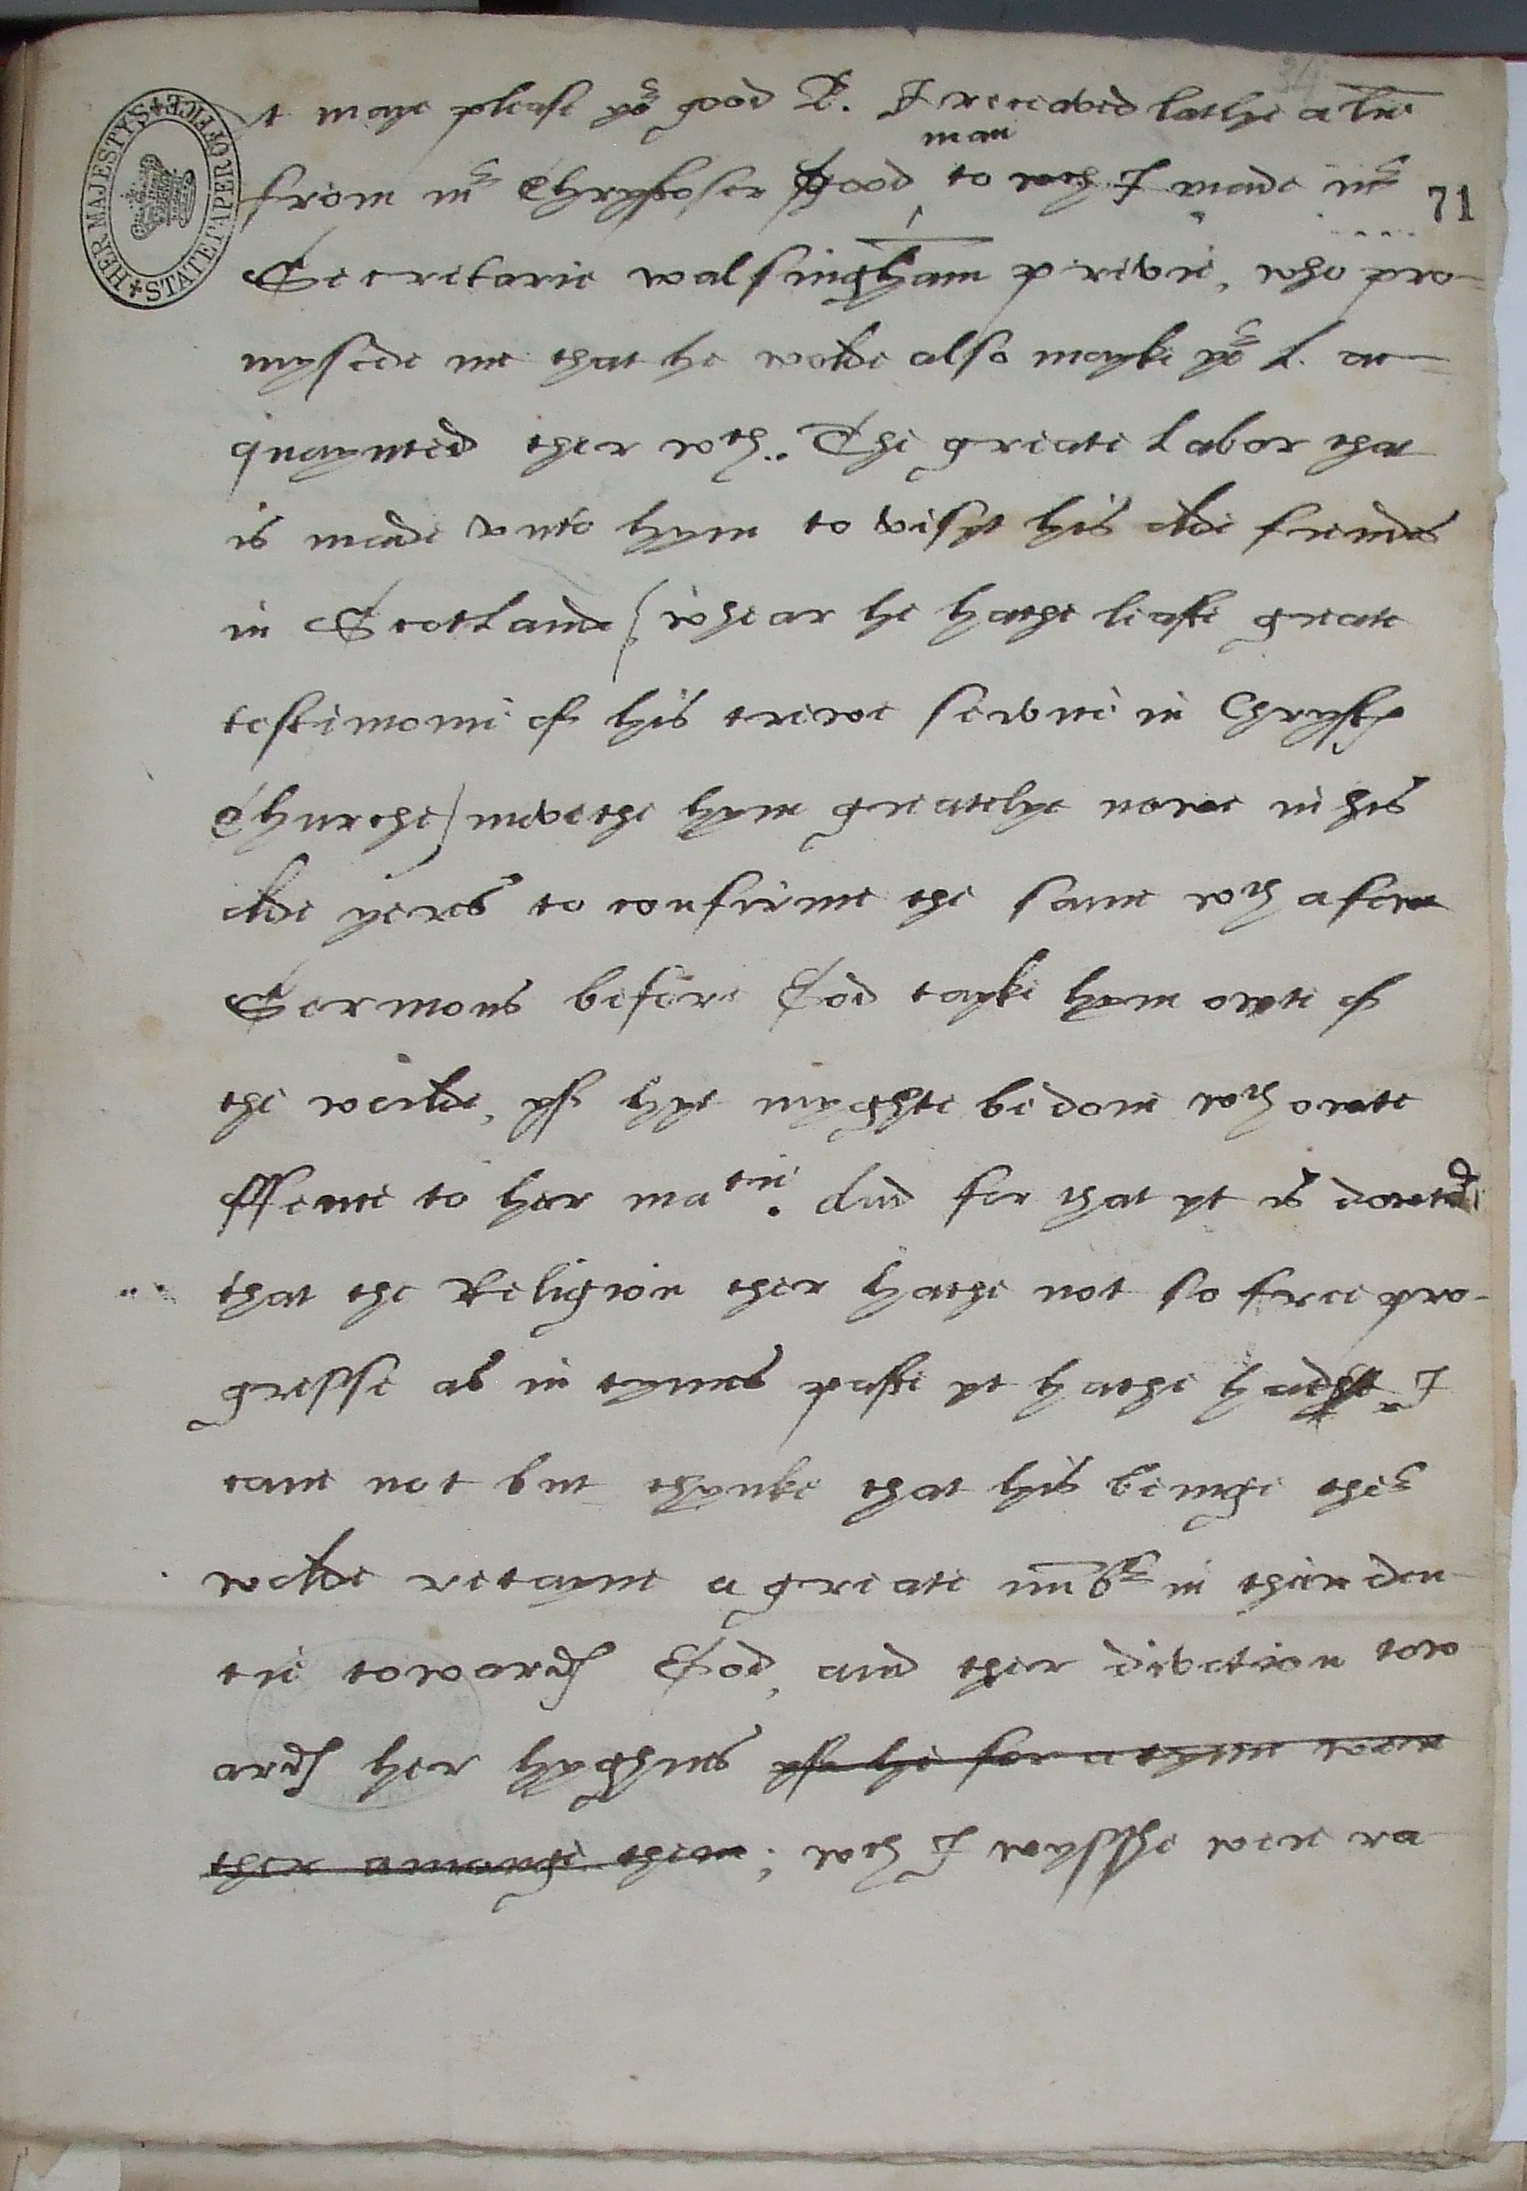 HER MAJESTYS STATE PAPER OFFICE
34
t maye please yor good L. I receaved latlye a lre
from mr Chrystofer Goodman to wch I made mr
71
Secretarie walsingham prevue, who pro-
mysede me that he wolde also mayke yor L. ac-
quaynted ther wth. The greate Labor that
is made unto hym to visyt his olde frends
in Scotlande (whear he hathe leafte great
testimonie of his trewe service in Chrysts
Churche) movethe hym greatelye nowe in his
olde yeres to confirme the same wth a fewe
Sermons before God tayke hym owte of
the worlde, yf hyt myghte be done wth owte
offence to her matie. And for that yt is dowted
that the Religion ther hathe not so free pro-
gresse as in tymes paste yt hathe hadde I
cane not but thynke that his beinge ther
wolde retayne a greate numbr in their deu-
tie towards God, and ther devotion tow
ards her hyghnes yf he for a tyme were
ther amonge them; wch I wysshe were ra